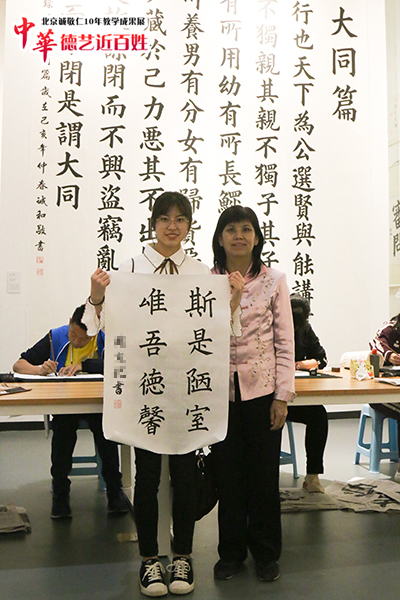 北京诚敬仁10年教学成果展
中華德艺近百姓
大同篇
行也天下為公選賢與能講
不獨親其親不獨子其子
有所用幼有所長鰥
男有分女有歸貨
藏於己力惡其不出
閉而不興盜竊亂
閉是謂大同
篇歲在己亥仲春誠和敬書
斯是陋室
唯吾德馨
書
審問